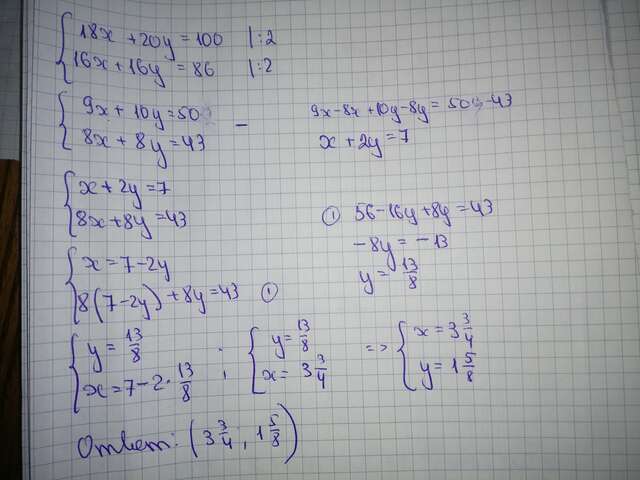 { 18x + 20y = 100 | : 2
{ 16x + 16y = 86 | : 2
{ 9x + 10y = 50
{ 8x + 8y = 43 -
9x - 8x + 10y - 8y = 50 - 43
x + 2y = 7
{ x + 2y = 7
{ 8x + 8y = 43
{ x = 7 - 2y
{ 8(7 - 2y) + 8y = 43 ①
① 56 - 16y + 8y = 43
- 8y = - 13
y = 13/8
{ y = 13/8
{ x = 7 - 2 · 13/8 ;
{ y = 13/8
{ x = 3 3/4
=> { x = 3 3/4
{ y = 1 5/8
Ответ: (3 3/4 ; 1 5/8)